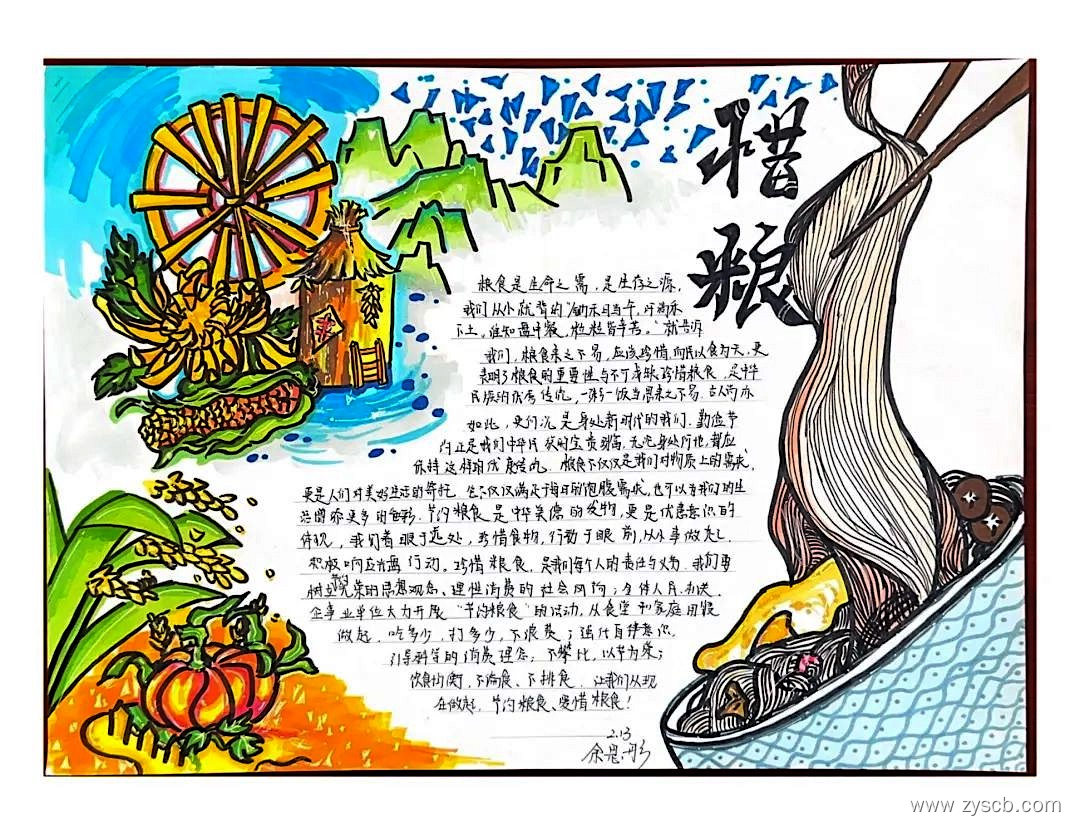 惜粮
粮食是生命之需，是生存之源。
我们从小就背的"锄禾日当午，汗滴禾
下土。谁知盘中餐，粒粒皆辛苦。"就告诉
我们，粮食来之不易，应该珍惜，而民以食为天，更
表明了粮食的重要性与不可或缺，珍惜粮食，是中华
民族的优秀传统，一粥一饭当思来之不易，古人尚亦
如此，更何况是身处新时代的我们。勤俭节
约正是我们中华民族的宝贵财富，无论身处何地，都应
保持这样的优良传统。粮食不仅仅是我们对物质上的需求，
更是人们对美好生活的寄托。它不仅仅满足于每日的饱腹需求，也可以为我们的生
活增添更多的色彩。节约粮食是中华美德的发扬，更是优患意识的
体现，我们着眼于远处，珍惜食物，行动于眼前，从小事做起。
积极响应光盘行动。珍惜粮食，是我们每个人的责任与义务。我们要
树立光荣的思想观念、理性消费的社会风向；全体人民、机关、
企事业单位大力开展"节约粮食"的活动，从食堂和家庭用餐
做起，吃多少，打多少，不浪费；强化自律意识，
引导科学的消费理念，不攀比，以节为荣；
饮食均衡，不偏食、不挑食，让我们从现
在做起，节约粮食、爱惜粮食！
2.13
www.zyscb.com